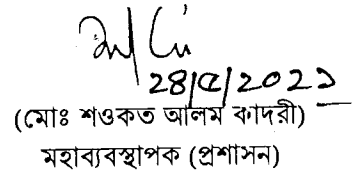 ২৪/৫/২০২১
(মোঃ শওকত আলম কাদরী)
মহাব্যবস্থাপক (প্রশাসন)